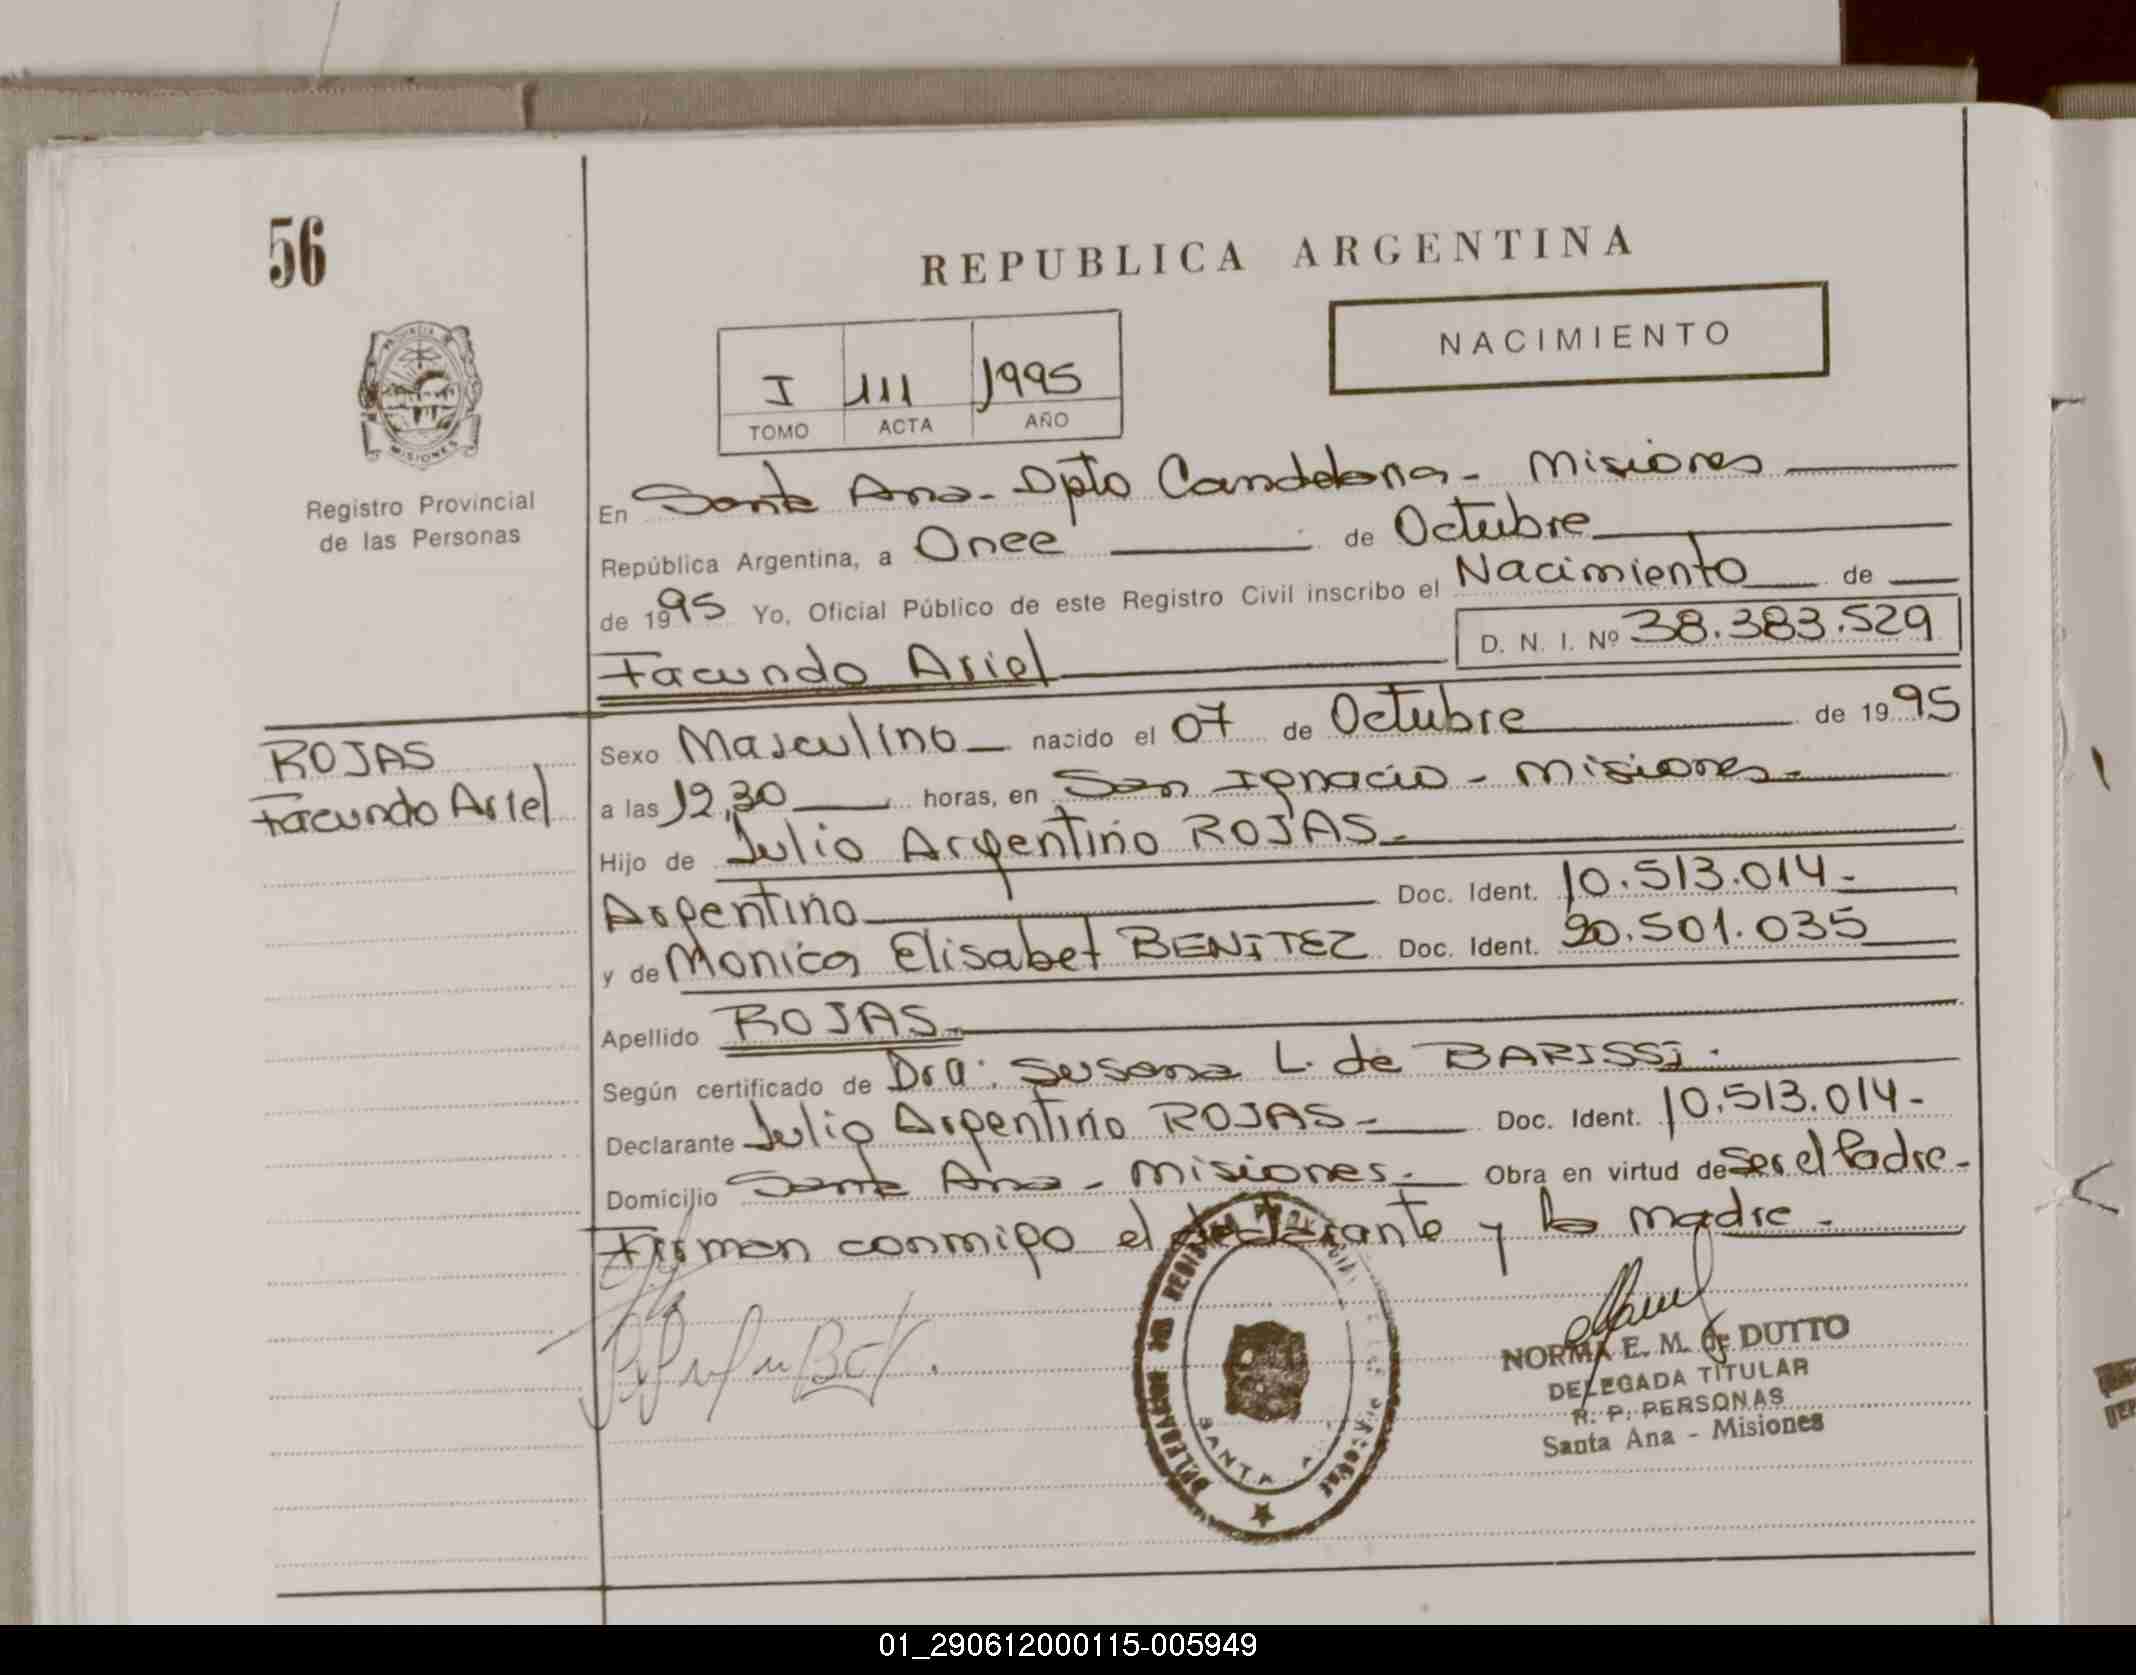 56
REPUBLICA ARGENTINA
NACIMIENTO
I 111 1995
TOMO ACTA AÑO
PROVINCIA
MISIONES
Registro Provincial
de las Personas
En Santa Ana - Dpto Candelaria - Misiones
República Argentina, a Once de Octubre
de 1995 Yo, Oficial Público de este Registro Civil inscribo el Nacimiento de
Facundo Ariel D. N. I. Nº 38.383.529
ROJAS
Facundo Ariel
Sexo Masculino nacido el 07 de Octubre de 1995
a las 12,30 horas, en San Ignacio - Misiones -
Hijo de Julio Argentino ROJAS -
Argentino Doc. Ident. 10.513.014 -
y de Monica Elisabet BENITEZ Doc. Ident. 20.501.035
Apellido ROJAS
Según certificado de Dra. Susana L. de BARISSI.
Declarante Julio Argentino ROJAS - Doc. Ident. 10.513.014 -
Domicilio Santa Ana - Misiones. Obra en virtud de Ser el Padre -
Firman conmigo el declarante y la madre -
SANTA
NORMA E. M. de DUTTO
DELEGADA TITULAR
R. P. PERSONAS
Santa Ana - Misiones
01_290612000115-005949